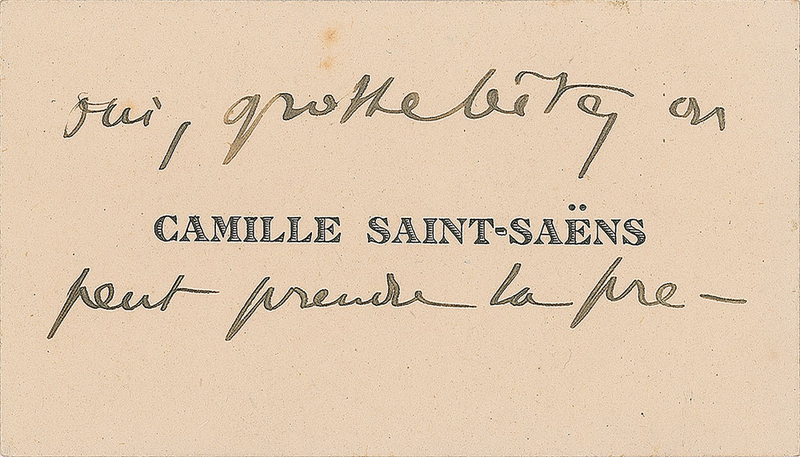 oui, grosse bête, on
CAMILLE SAINT-SAËNS
peut prendre la pre-